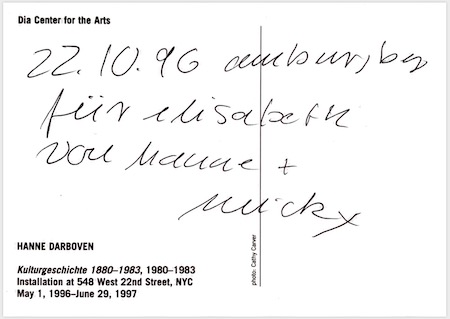 Dia Center for the Arts
22.10.96 am burgberg
für elisabeth
von hanne +
micky
HANNE DARBOVEN
Kulturgeschichte 1880–1983, 1980–1983
Installation at 548 West 22nd Street, NYC
May 1, 1996–June 29, 1997
photo: Cathy Carver